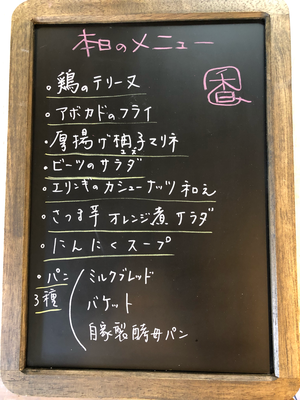 本日のメニュー
香
・鶏のテリーヌ
・アボカドのフライ
・厚揚げ柚子マリネ
ユズ
・ビーツのサラダ
・エリンギのカシューナッツ和え
・さつま芋オレンジ煮サラダ
・にんにくスープ
・パン
3種
ミルクブレッド
バケット
自家製酵母パン